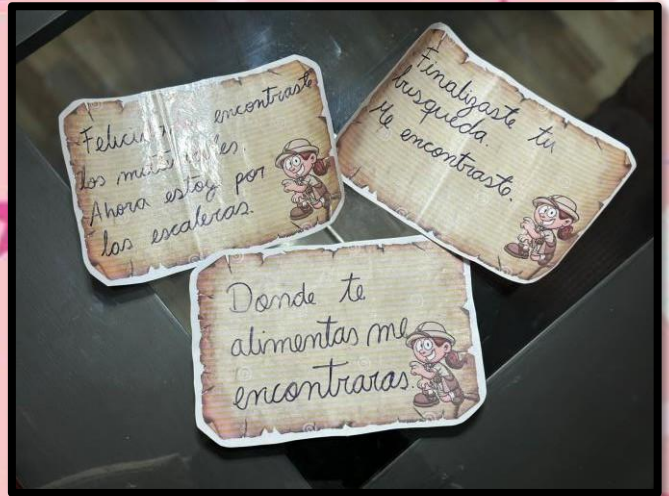 encontraste
los
Ahora estoy por
las escaleras.
Finalizaste tu
busqueda.
Me encontraste.
Donde te
alimentas me
encontraras.